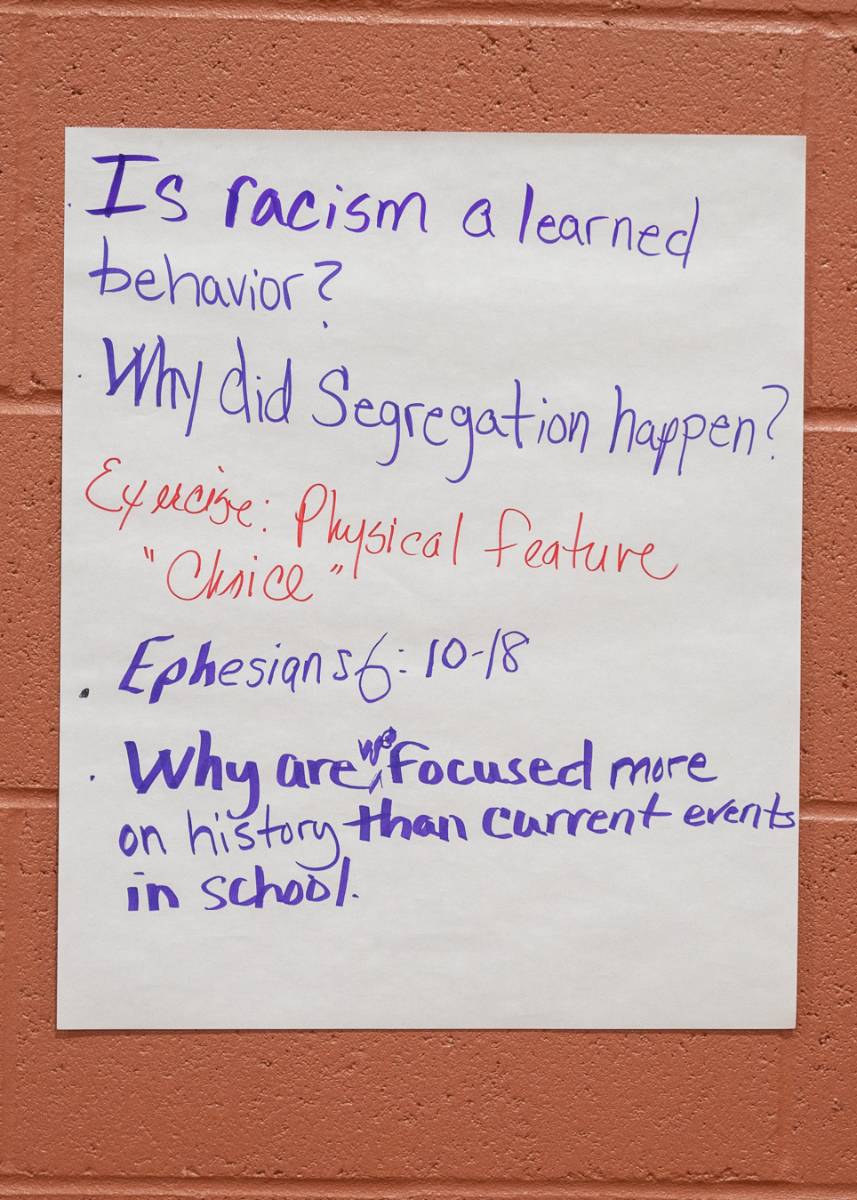 Is racism a learned
behavior?
Why did Segregation happen?
Exercise: Physical feature
"Choice"
Ephesians 6:10-18
Why are we focused more
on history than current events
in school.